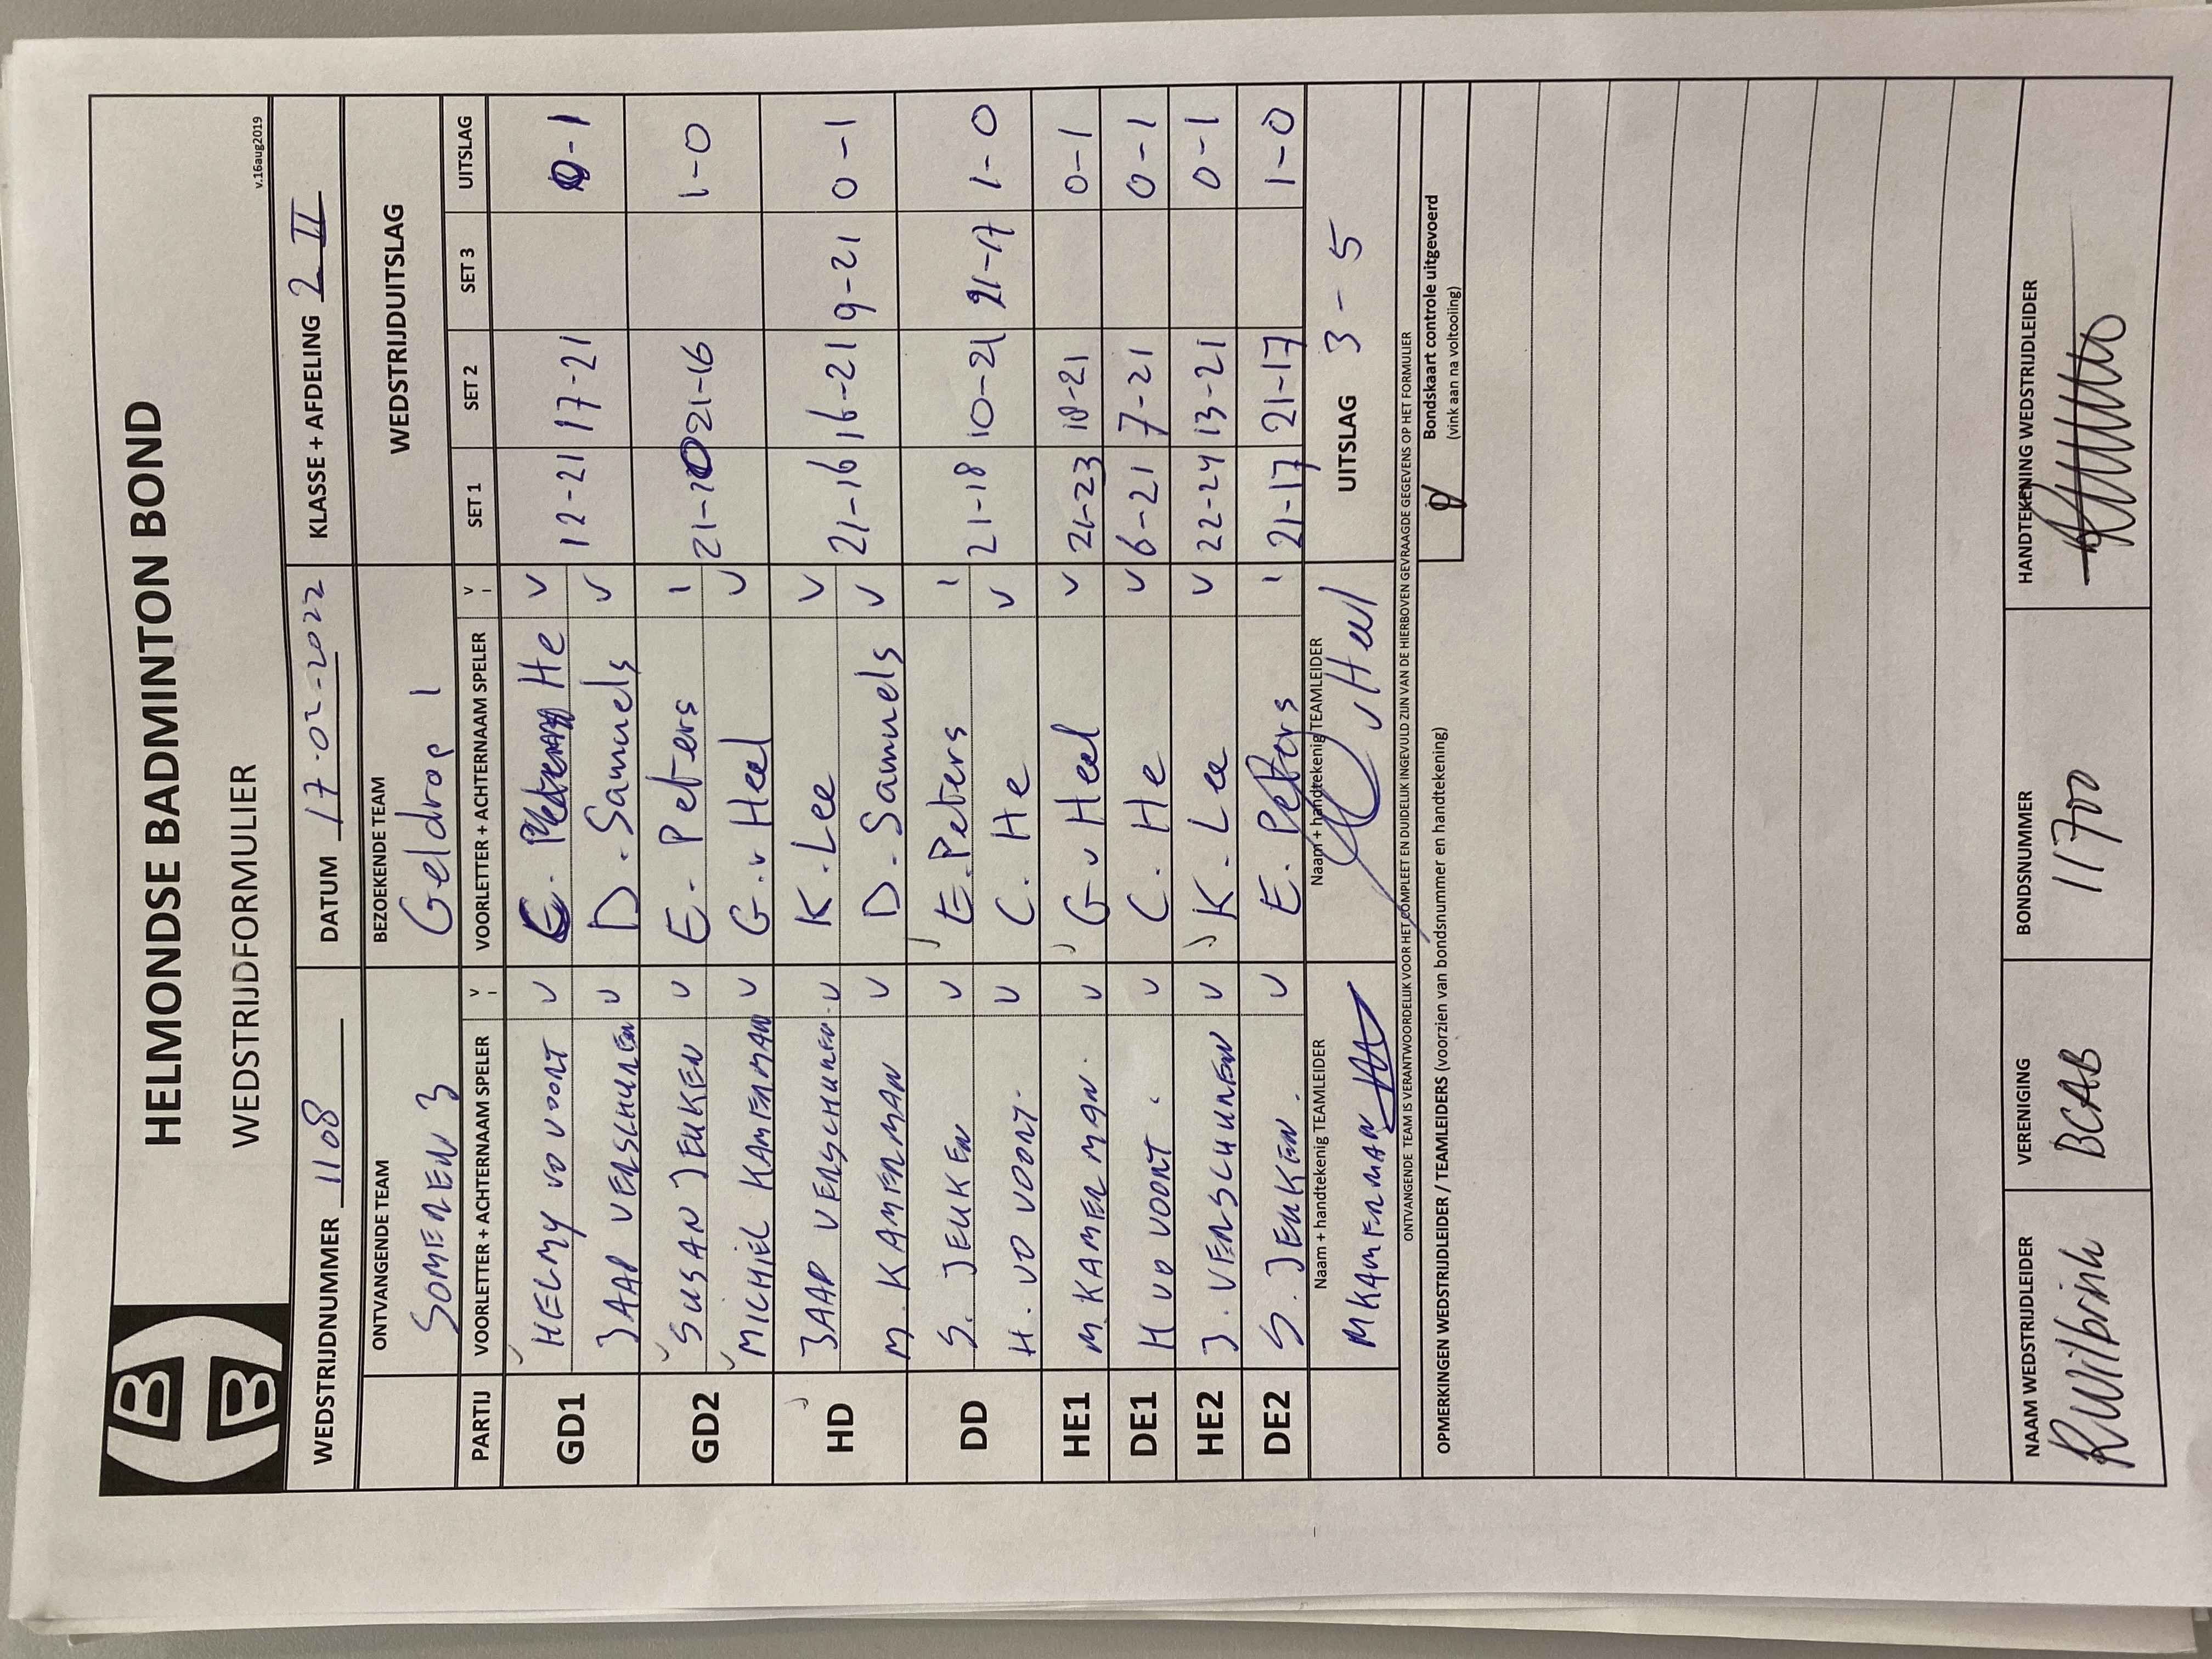 HELMONDSE BADMINTON BOND
WEDSTRIJDFORMULIER
v.16aug2019
WEDSTRIJDNUMMER 1108 DATUM 17-02-2022 KLASSE + AFDELING 2 II
ONTVANGENDE TEAM BEZOEKENDE TEAM WEDSTRIJDUITSLAG
SOMEREN 3 Geldrop 1
PARTIJ VOORLETTER + ACHTERNAAM SPELER V I VOORLETTER + ACHTERNAAM SPELER V I SET 1 SET 2 SET 3 UITSLAG
GD1 HELMY VD VOORT V C. He V 12-21 17-21 0-1
JAAP VERSCHUREN V D. Samuels V
GD2 SUSAN JEUKEN V E. Peters I 21-10 21-16 1-0
MICHIEL KAMERMAN V G. v Heel V
HD JAAP VERSCHUREN V K. Lee V 21-16 16-21 9-21 0-1
M. KAMERMAN V D. Samuels V
DD S. JEUKEN V E. Peters I 21-18 10-21 21-17 1-0
H. VD VOORT V C. He V
HE1 M. KAMERMAN V G v Heel V 21-23 18-21 0-1
DE1 H VD VOORT V C. He V 6-21 7-21 0-1
HE2 J. VERSCHUREN V K. Lee V 22-24 13-21 0-1
DE2 S. JEUKEN V E. Peters I 21-17 21-17 1-0
Naam + handtekenig TEAMLEIDER Naam + handtekenig TEAMLEIDER UITSLAG 3-5
M KAMERMAN vHeel
ONTVANGENDE TEAM IS VERANTWOORDELIJK VOOR HET COMPLEET EN DUIDELIJK INGEVULD ZIJN VAN DE HIERBOVEN GEVRAAGDE GEGEVENS OP HET FORMULIER
OPMERKINGEN WEDSTRIJDLEIDER / TEAMLEIDERS (voorzien van bondsnummer en handtekening)
Bondskaart controle uitgevoerd
(vink aan na voltooling)
NAAM WEDSTRIJDLEIDER VERENIGING BONDSNUMMER HANDTEKENING WEDSTRIJDLEIDER
R Wilbrink BCAB 11700